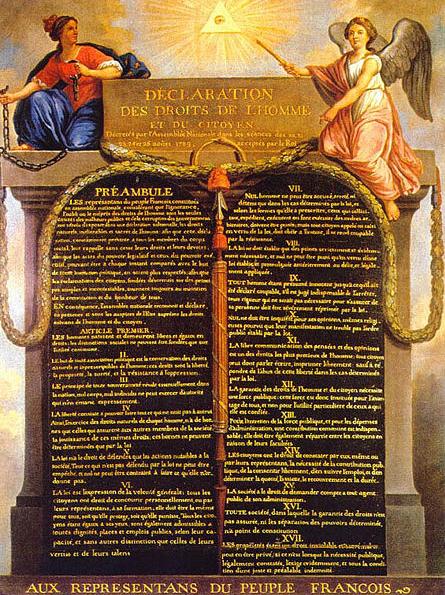 DÉCLARATION
DES DROITS DE L'HOMME
ET DU CITOYEN,
Décrétés par l'Assemblée Nationale dans les séances des 20, 21
23, 24 et 26 août 1789, acceptés par le Roi
PRÉAMBULE
LES représentans du peuple François, constitués
en assemblée nationale, considérant que l'ignorance,
l'oubli ou le mépris des droits de l'homme sont les seules
causes des malheurs publics et de la corruption des gouvernemens
ont résolu d'exposer dans une déclaration solemnelle, les droits
naturels, inaliénables et sacrés de l'homme; afin que cette décla-
ration, constamment présente à tous les membres du corps
social, leur rappelle sans cesse leurs droits et leurs devoirs;
afin que les actes du pouvoir législatif et ceux du pouvoir exé-
cutif, pouvant être à chaque instant comparés avec le but
de toute institution politique, en soient plus respectés; afin que
les réclamations des citoyens, fondées désormais sur des princi-
pes simples et incontestables, tournent toujours au maintien
de la constitution et du bonheur de tous.
EN conséquence, l'assemblée nationale reconnoit et déclare,
en présence et sous les auspices de l'Etre suprême les droits
suivans de l'homme et du citoyen.
ARTICLE PREMIER.
LES hommes naissent et demeurent libres et égaux en
droits. les distinctions sociales ne peuvent être fondées que sur
l'utilité commune.
II.
LE but de toute association politique est la conservation des droits
naturels et imprescriptibles de l'homme; ces droits sont la liberté,
la propriété, la sureté, et la résistance à l'oppression.
III.
LE principe de toute souveraineté réside essentiellement dans
la nation, nul corps, nul individu ne peut exercer d'autorité
qui n'en émane expressément.
IV.
LA liberté consiste à pouvoir faire tout ce qui ne nuit pas à autrui
Ainsi, l'exercice des droits naturels de chaque homme, n'a de bor-
nes que celles qui assurent aux autres membres de la société
la jouissance de ces mêmes droits; ces bornes ne peuvent
être déterminées que par la loi
V.
LA loi n'a le droit de défendre que les actions nuisibles à la
société. Tout ce qui n'est pas défendu par la loi ne peut être
empêché, et nul ne peut être contraint à faire ce qu'elle n'or-
donne pas.
VI.
LA loi est l'expression de la volonté générale; tous les
citoyens ont droit de concourir personnellement, ou par
leurs représentans, à sa formation; elle doit être la même
pour tous, soit qu'elle protège, soit qu'elle punisse. Tous les cito-
yens étant égaux à ses yeux, sont également admissibles à
toutes dignités, places et emplois publics, selon leur ca-
pacité, et sans autres distinction que celles de leurs
vertus et de leurs talens
VII.
NUL homme ne peut être accusé, arrêté, ni
détenu que dans les cas déterminés par la loi, et
selon les formes qu'elle a prescrites. ceux qui sollici-
tent, expédient, exécutent ou font exécuter des ordres ar-
bitraires, doivent être punis; mais tout citoyen appelé ou saisi
en vertu de la loi, doit obéir à l'instant, il se rend coupable
par la résistance.
VIII.
LA loi ne doit établir que des peines strictement et évidemment
nécessaires, et nul ne peut être puni qu'en vertu d'une
loi établie et promulguée antérieurement au délit, et légale-
ment appliquée.
IX.
TOUT homme étant présumé innocent jusqu'à ce qu'il ait
été déclaré coupable, s'il est jugé indispensable de l'arrêter,
toute rigueur qui ne seroit pas nécessaire pour s'assurer de
sa personne doit être sévèrement réprimée par la loi.
X.
NUL ne doit être inquiété pour ses opinions, mêmes religi-
euses pourvu que leur manifestation ne trouble pas l'ordre
public établi par la loi.
XI.
LA libre communication des pensées et des opinions
est un des droits les plus précieux de l'homme; tout citoyen
peut donc parler, écrire, imprimer librement; sauf à ré-
pondre de l'abus de cette liberté dans les cas déterminés
par la loi.
XII.
LA garantie des droits de l'homme et du citoyen nécessite
une force publique; cette force est donc instituée pour l'avan-
tage de tous, et non pour l'utilité particulière de ceux à qui
elle est confiée.
XIII.
Pour l'entretien de la force publique, et pour les dépenses
d'administration, une contribution commune est indispen-
sable; elle doit être également répartie entre les citoyens en
raison de leurs facultés.
XIV.
LES citoyens ont le droit de constater par eux même ou
par leurs représentans, la nécessité de la contribution pub-
lique, de la consentir librement, d'en suivre l'emploi, et d'en
déterminer la quotité, l'assiette, le recouvrement et la durée.
XV.
LA société a le droit de demander compte à tout agent
public de son administration.
XVI.
TOUTE société, dans laquelle la garantie des droits n'est
pas assurée, ni la séparation des pouvoirs déterminée,
n'a point de constitution
XVII.
LES propriétés étant un droit inviolable et sacré, nul ne
peut en être privé, si ce n'est lorsque la nécessité publique,
légalement constatée, l'exige évidemment, et sous la condition
d'une juste et préalable indemnité.
AUX REPRESENTANS DU PEUPLE FRANCOIS